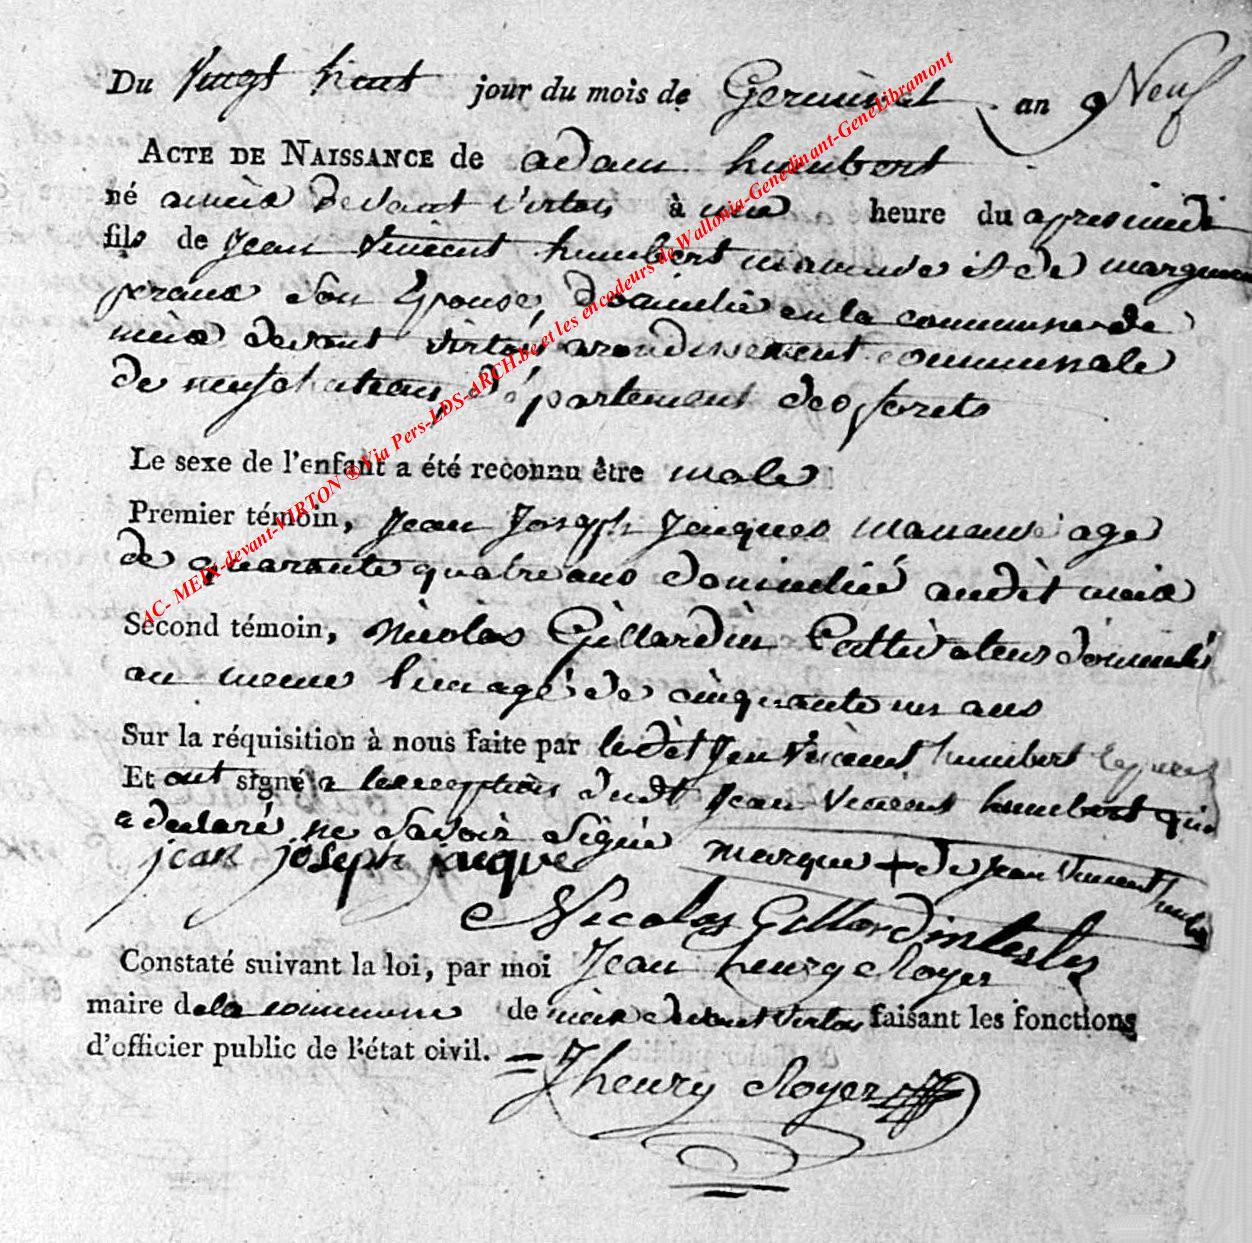 Du Vingt huit jour du mois de Germinal an 9 Neuf
ACTE DE NAISSANCE de adam humbert
né a meix devant virton à une heure du apres midi
fils de Jean Vincent humbert manœuvre et de
son Epouse, domicilié en la commune de
meix devant virton arondissement communale
de neufchateau, département des forets
Le sexe de l'enfant a été reconnu être male
Premier témoin, Jean Joseph Jacques manœuvre age
de quarante quatre ans domicilié audit meix
Second témoin, Nicolas Gillardin Cultivateur domicilié
au meme lieu agé de cinquante un ans
Sur la réquisition à nous faite par ledit Jean Vincent humbert
Et ont signé a lexception dudt Jean Vincent humbert qui
a declaré ne savoir signé marque + de Jean Vincent
jean joseph jacque
Nicolas Gillardin
Constaté suivant la loi, par moi Jean henry Royer
maire de la commune de meix devant virton faisant les fonctions
d'officier public de l'état civil. = J henry Royer
AC- MEIX-devant-VIRTON ® Via Pers-LDS-ARCH.be et les encodeurs de Wallonia-Genedinant-GeneLibramont